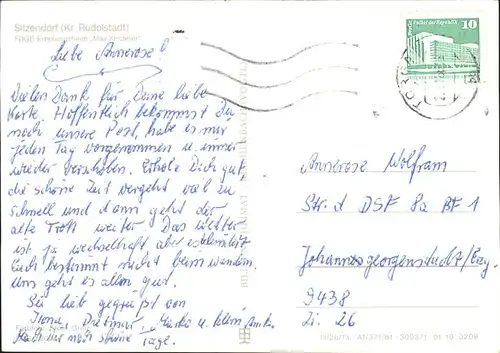 Sitzendorf (Kr. Rudolstadt)
FDGB-Erholungsheim „Max Kirchner“
Liebe Annerose!
Vielen Dank für Deine liebe
Karte. Hoffentlich bekommst Du
noch unsere Post, habe es mir
jeden Tag vorgenommen u. immer
wieder verschoben. Erhole Dich gut,
die schöne Zeit vergeht viel zu
schnell und dann geht der
alte Trott weiter. Das Wetter
ist ja wechselhaft aber
Euch bestimmt nicht beim wandern.
Uns geht es allen gut.
Sei lieb gegrüßt von
Ilona, Dietmar, u. klein Anke
Mach Dir noch schöne Tage.
10
Annerose Wolfram
Str. d DSF 8a BF 1
Johanngeorgenstadt/Erzg.
9438
Zi. 26
01 10 0209